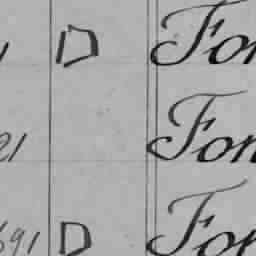 1 D For
21 Fon
691 D For